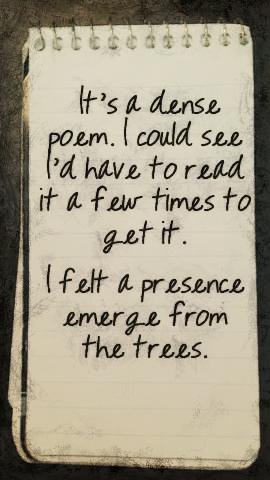 It's a dense
poem. I could see
I'd have to read
it a few times to
get it.
I felt a presence
emerge from
the trees.